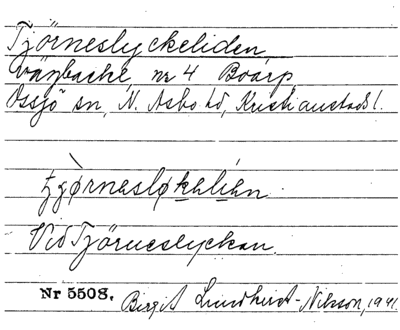 Tjörneslyckeliden
vägbacke, nr 4 Boarp,
Össjö sn, N. Åsbo hd, Kristianstads l.
Vid Tjörneslyckan.
Nr 5508. Birgit Lundkvist-Nilsson, 1941.